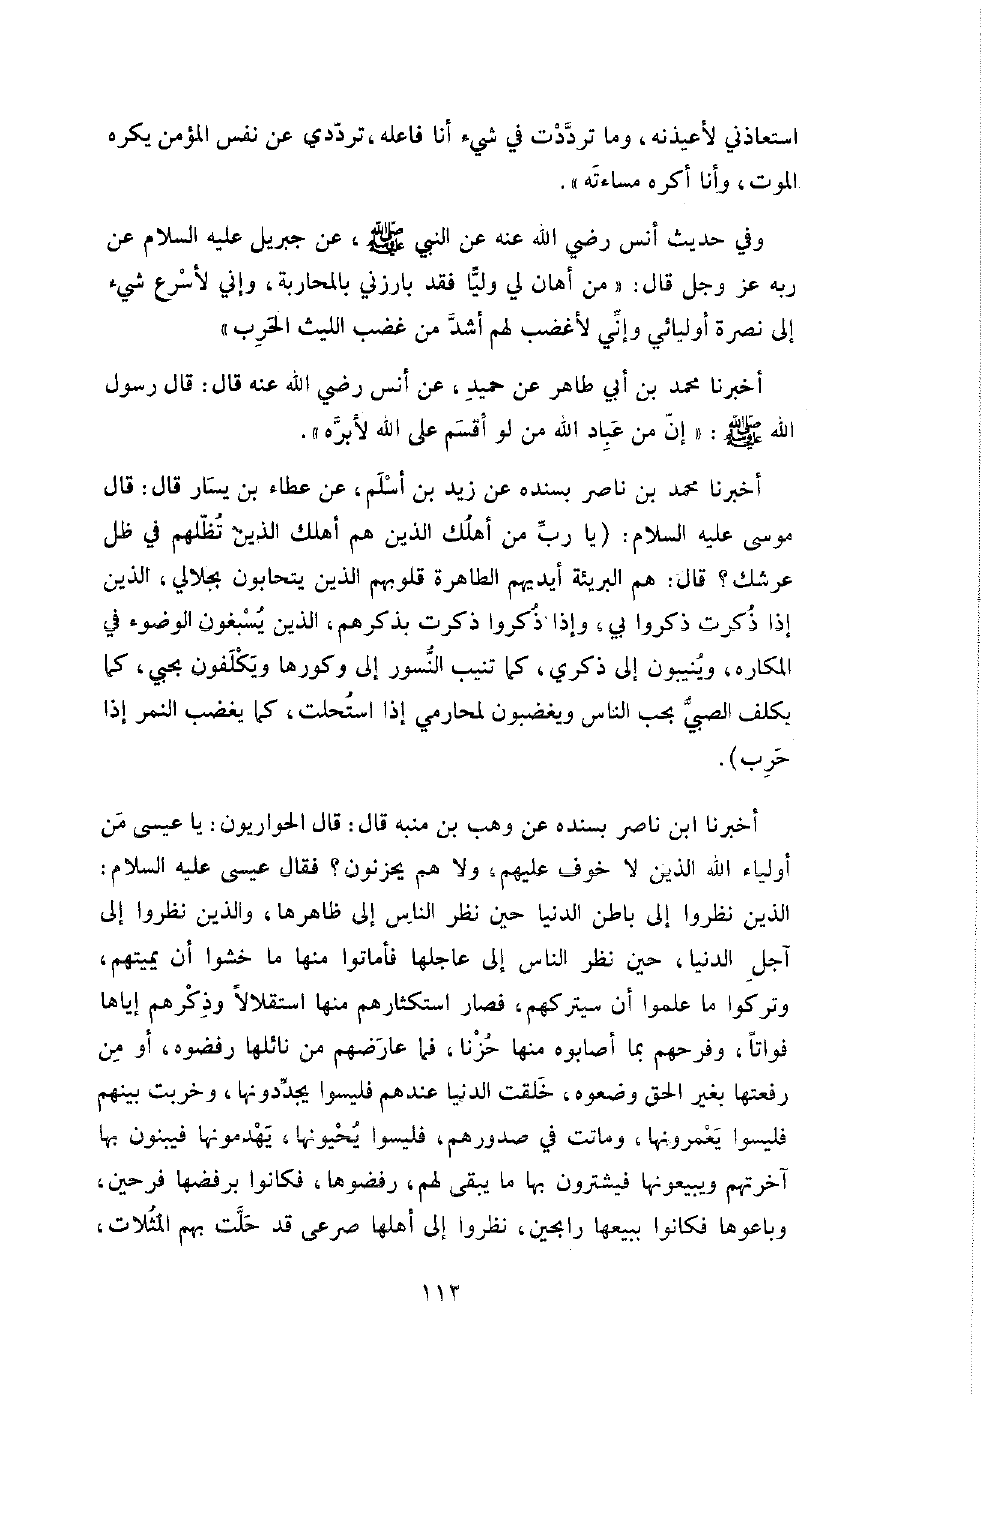 استعاذني لأعيذنه، وما تردَّدْت في شيء أنا فاعله، تردّدي عن نفس المؤمن يكره
الموت، وأنا أكره مساءتَه».
وفي حديث أنس رضي الله عنه عن النبي ﷺ، عن جبريل عليه السلام عن
ربه عز وجل قال: «من أهان لي وليًّا فقد بارزني بالمحاربة، وإني لأسْرع شيء
إلى نصرة أوليائي وإنِّي لأغضب لهم أشدَّ من غضب الليث الحَرِب»
أخبرنا محمد بن أبي طاهر عن حميدٍ، عن أنس رضي الله عنه قال: قال رسول
الله ﷺ: «إنّ من عَبِاد الله من لو أقسَم على الله لأبرَّه».
أخبرنا محمد بن ناصر بسنده عن زيد بن أسْلَم، عن عطاء بن يسَار قال: قال
موسى عليه السلام: (يا ربِّ من أهلُك الذين هم أهلك الذين تُظّلهم في ظل
عرشك؟ قال: هم البريئة أيديهم الطاهرة قلوبهم الذين يتحابون بجلالي، الذين
إذا ذُكرت ذكروا بي، وإذا ذُكروا ذكرت بذكرهم، الذين يُسْبغون الوضوء في
المكاره، ويُنيبون إلى ذكري، كما تنيب النُّسور إلى وكورها ويَكْلَفون بحبي، كما
يكلف الصبيُّ بحب الناس ويغضبون لمحارمي إذا استُحلت، كما يغضب النمر إذا
حَرِب).
أخبرنا ابن ناصر بسنده عن وهب بن منبه قال: قال الحواريون: يا عيسى مَن
أولياء الله الذين لا خوف عليهم، ولا هم يحزنون؟ فقال عيسى عليه السلام:
الذين نظروا إلى باطن الدنيا حين نظر الناس إلى ظاهرها، والذين نظروا إلى
آجلِ الدنيا، حين نظر الناس إلى عاجلها فأماتوا منها ما خشوا أن يميتهم،
وتركوا ما علموا أن سيتركهم، فصار استكثارهم منها استقلالاً وذِكْرهم إياها
فواتاً، وفرحهم بما أصابوه منها حُزْنا، فما عارَضهم من نائلها رفضوه، أو مِن
رفعتها بغير الحق وضعوه، خَلقت الدنيا عندهم فليسوا يجدّدونها، وخربت بينهم
فليسوا يَعْمرونها، وماتت في صدورهم، فليسوا يُحْيونها، يَهْدمونها فيبنون بها
آخرتهم ويبيعونها فيشترون بها ما يبقى لهم، رفضوها، فكانوا برفضها فرحين،
وباعوها فكانوا ببيعها رابحين، نظروا إلى أهلها صرعى قد حَلَّت بهم المثُلات،
١١٣